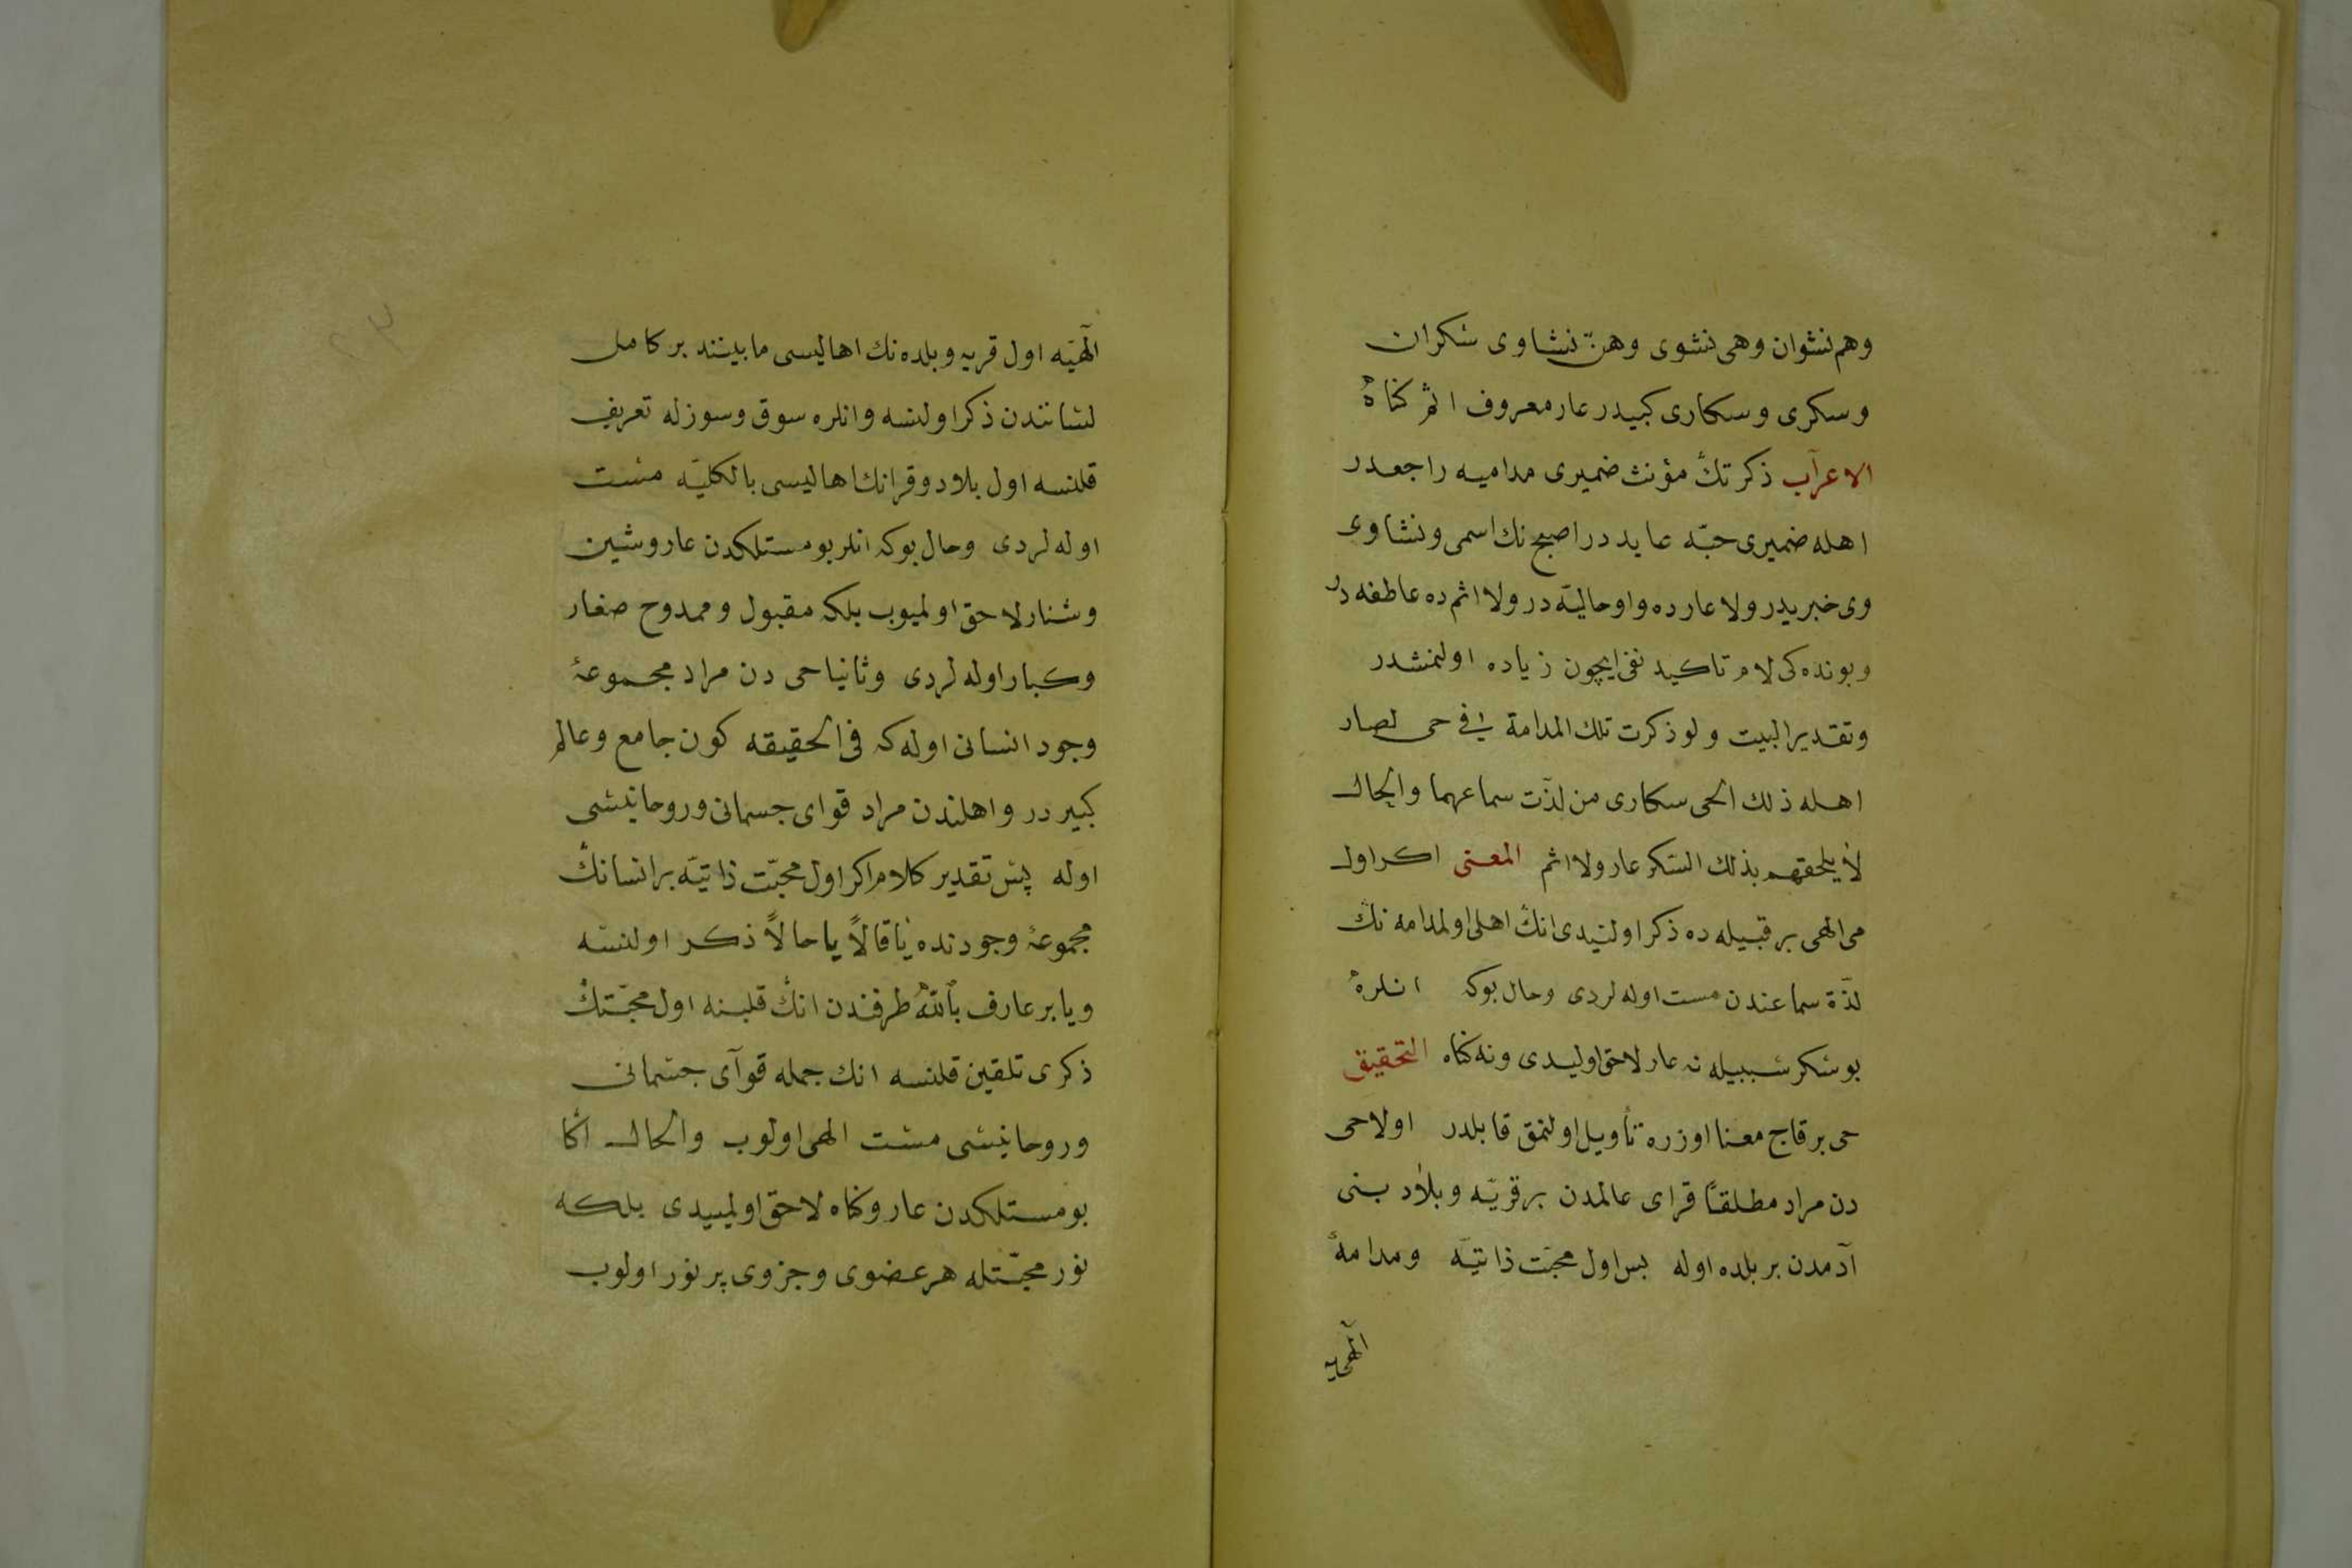 وهم نشوان وهی نشوی وهنّ نشاوی سکران
وسکری وسکاری کبیدر عار معروف اثم کناهٔ
الاعرآب ذکرتكٔ مؤنث ضمیری مدامیه راجعدر
اهله ضمیری حبّه عاید در اصبح نك اسمی ونشاوی
وی خبریدر ولا عارده واو حالیّه در ولا اثم ده عاطفه در
وبونده کی لام تاکید نفی ایچون زیاده اولنمشدر
وتقدیر البیت ولو ذکرت تلك المدامة فی حی لصار
اهله ذلك الحی سکاری من لذّت سماعهما والحال
لا یلحقهم بذلك السّکر عار ولا اثم المعنی اکر اول
می الهی بر قبیله ده ذکر اولنیدی انكٔ اهلی اول مدامه نكٔ
لذّة سماعندن مست اوله لردی وحال بوکه انلرهٔ
بو سکر سببیله نه عار لاحق اولیدی ونه کناه التحقیق
حی بر قاج معنا اوزره تأویل اولنمق قابلدر اولا حی
دن مراد مطلقاً قرای عالمدن بر قریّه وبلاد بنی
آدمدن بر بلده اوله بس اول محبّت ذاتیّه ومدامهٔ
الٓهیه
الٓهیّه اول قریه وبلده نك اهالیسی مابیننده بر کامل
لسانندن ذکر اولنسه وانلره سوق وسوزله تعریف
قلنسه اول بلاد وقرانك اهالیسی بالکلیّه مست
اوله لردی وحال بوکه انلر بو مستلکدن عار وشین
وشنار لاحق اولمیوب بلکه مقبول وممدوح صغار
وکبار اوله لردی وثانیا حی دن مراد مجموعهٔ
وجود انسانی اوله که فی الحقیقه کون جامع وعالم
کبیر در واهلندن مراد قوای جسمانی وروحانیسی
اوله پس تقدیر کلام اکر اول محبّت ذاتیّه بر انسانكٔ
مجموعهٔ وجودنده یا قالاً یا حالاً ذکر اولنسه
ویا بر عارف باللّه طرفندن انكٔ قلبنه اول محبّتكٔ
ذکری تلقین قلنسه انك جمله قوآی جسمانی
وروحانیسی مست الهی اولوب والحال اکا
بو مستلکدن عار وکناه لاحق اولمیدی بلکه
نور محبّتله هر عضوی وجزوی پر نور اولوب